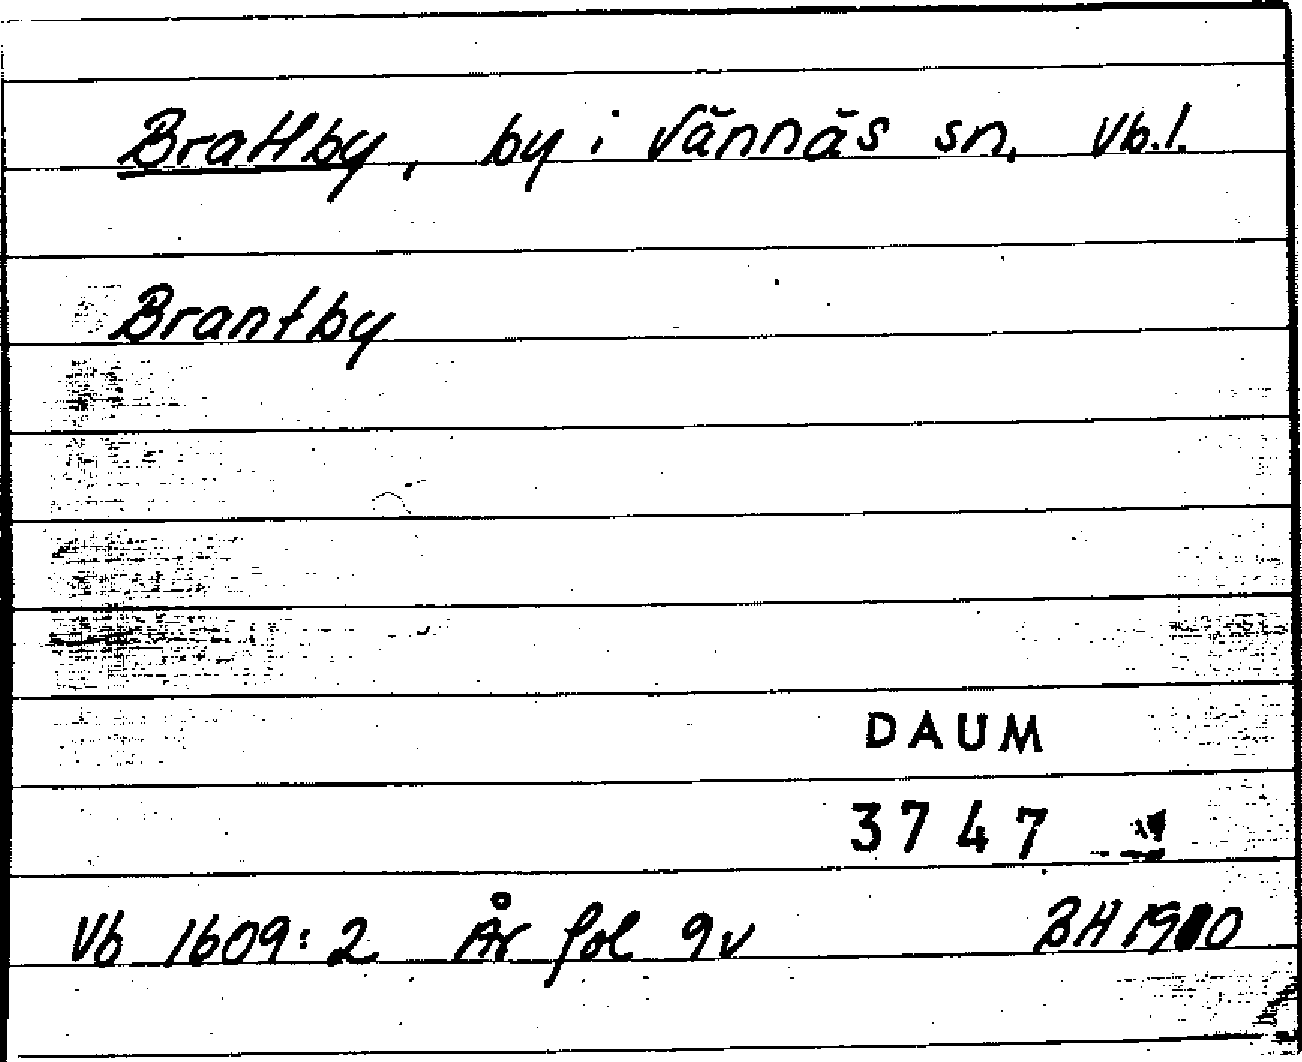 Brattby, by i Vännäs sn, Vb.l.
Brantby
DAUM
3747
Vb 1609:2 År fol 9v BH